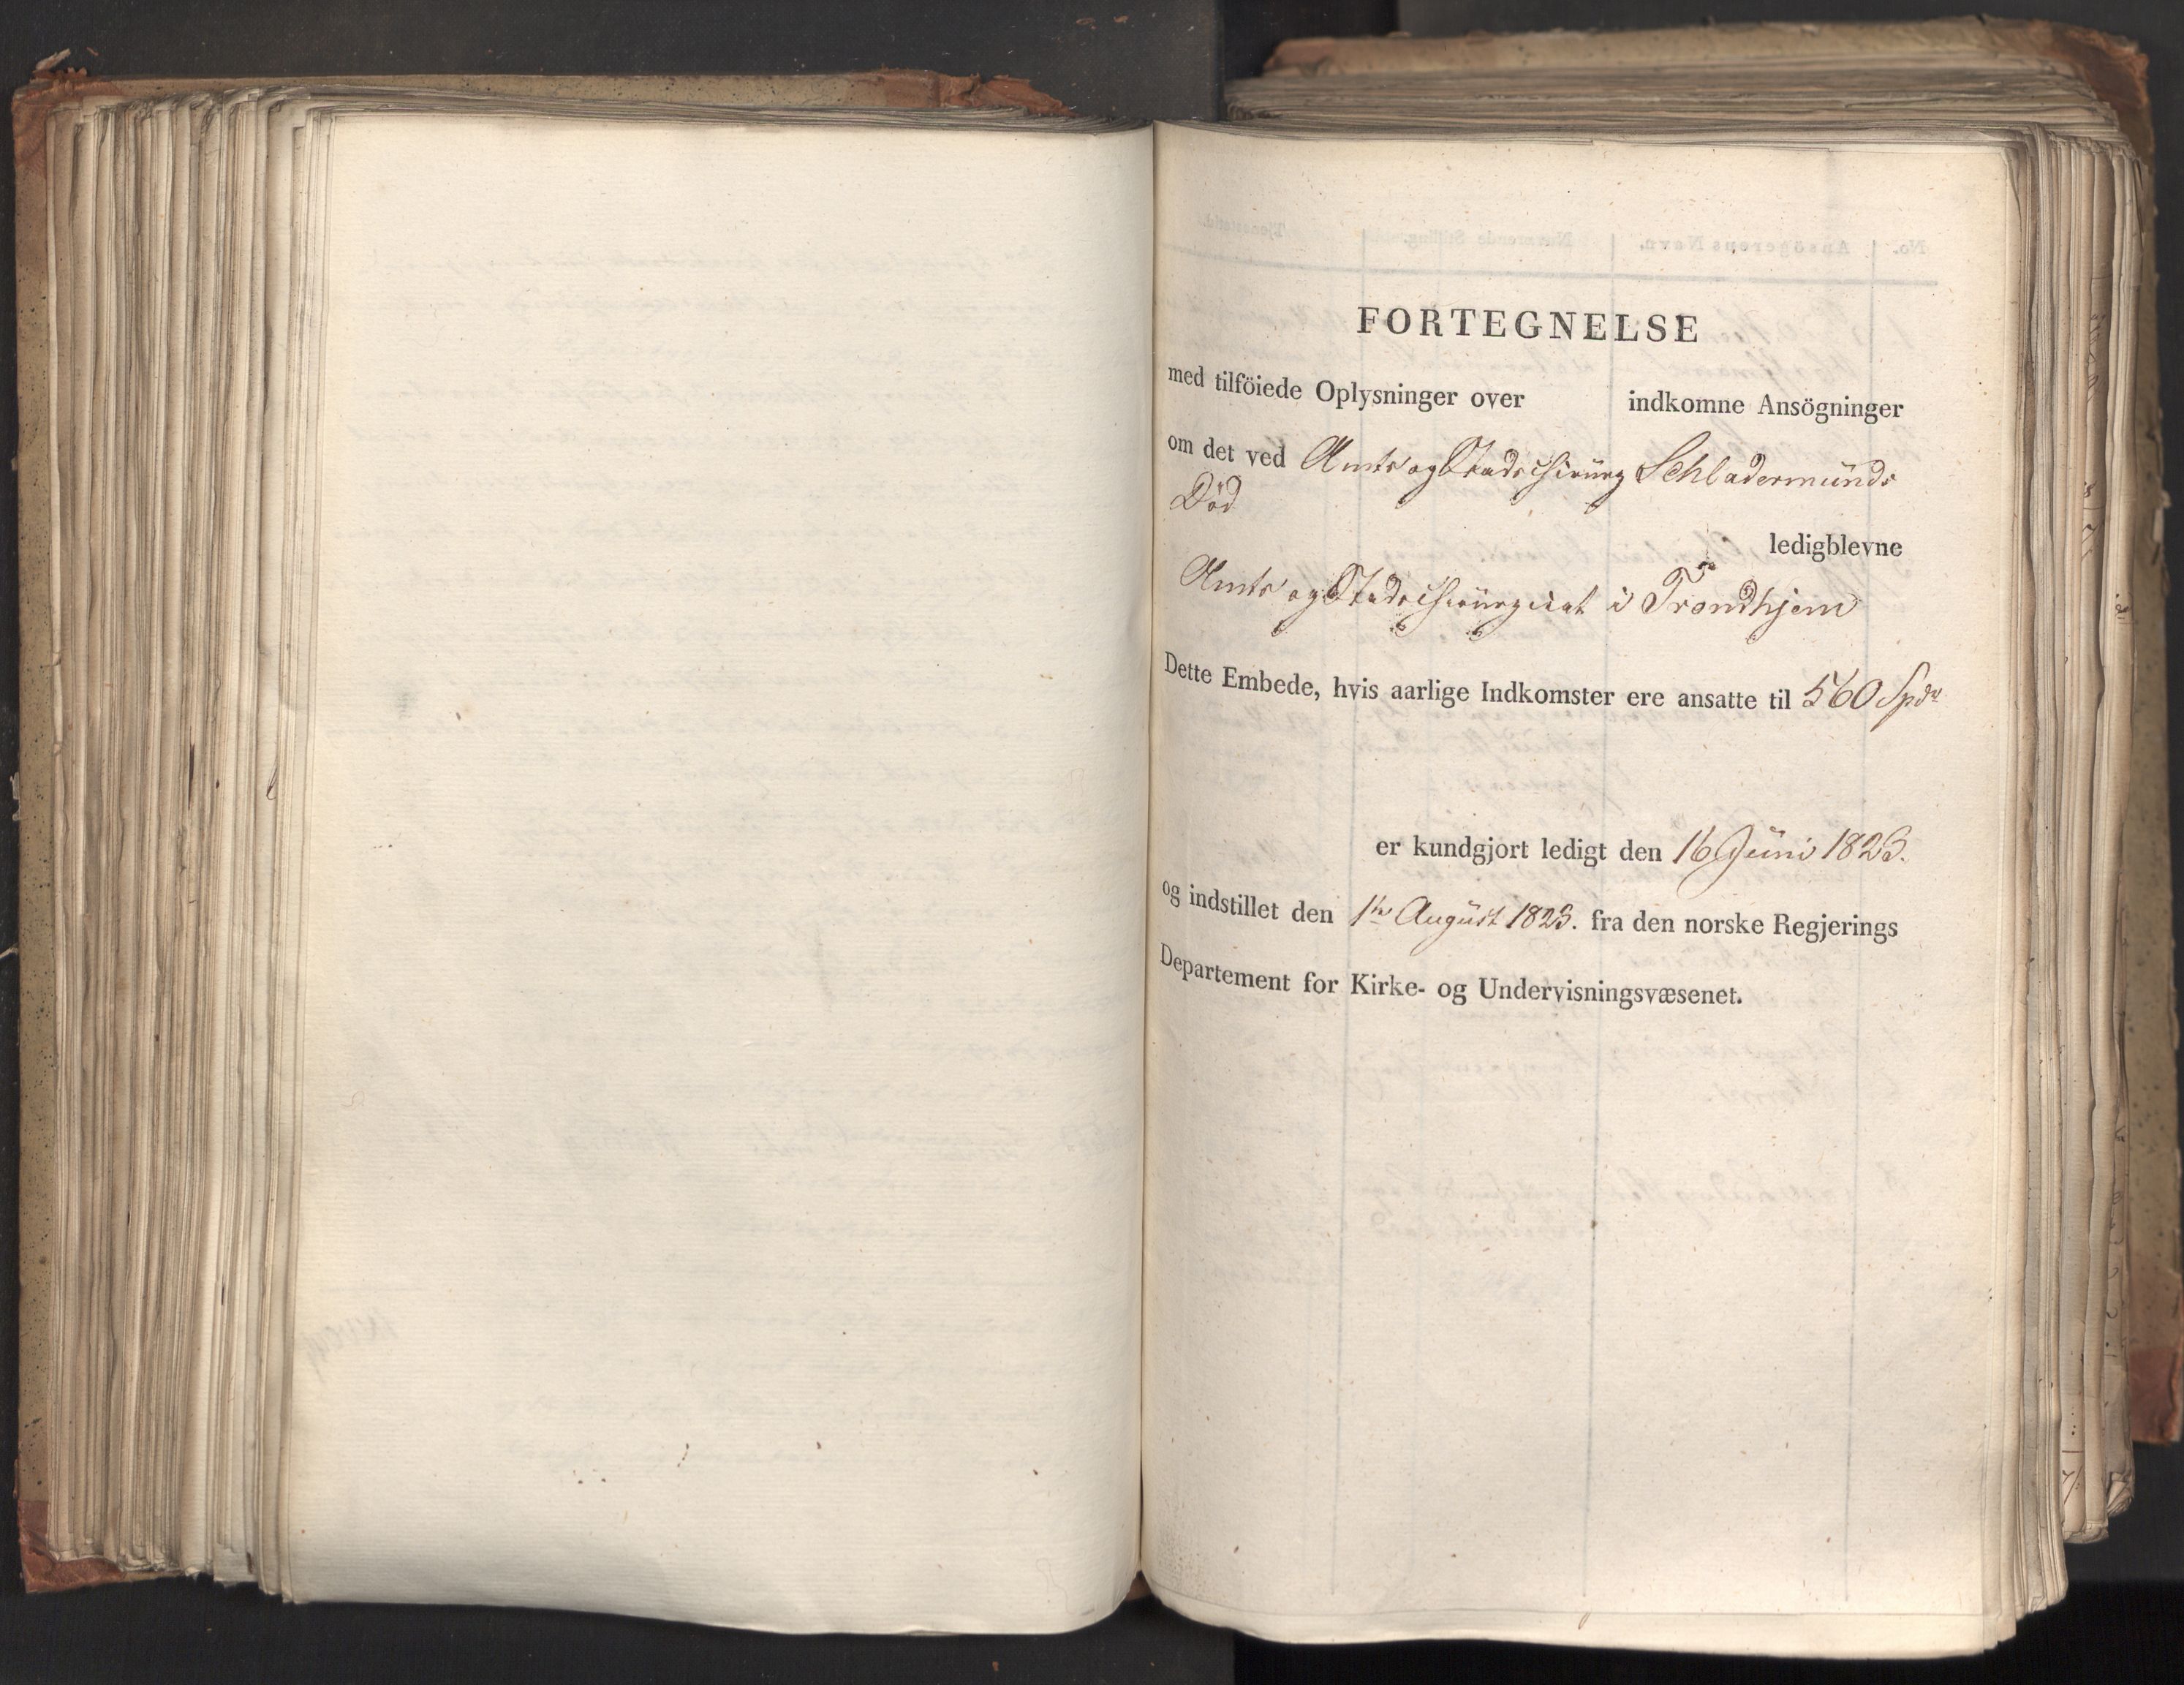 FORTEGNELSE
med tilföiede Oplysninger over indkomne Ansögninger
om det ved Amts og Stadschirurg Schladermunds
Död
ledigblevne
Amts og Stadschirurgicat i Trondhjem
Dette Embede, hvis aarlige Indkomster ere ansatte til 560 Spdr
er kundgjort ledigt den 16 Juni 1823.
og indstillet den 1ste August 1823. fra den norske Regjerings
Departement for Kirke- og Undervisningsvæsenet.